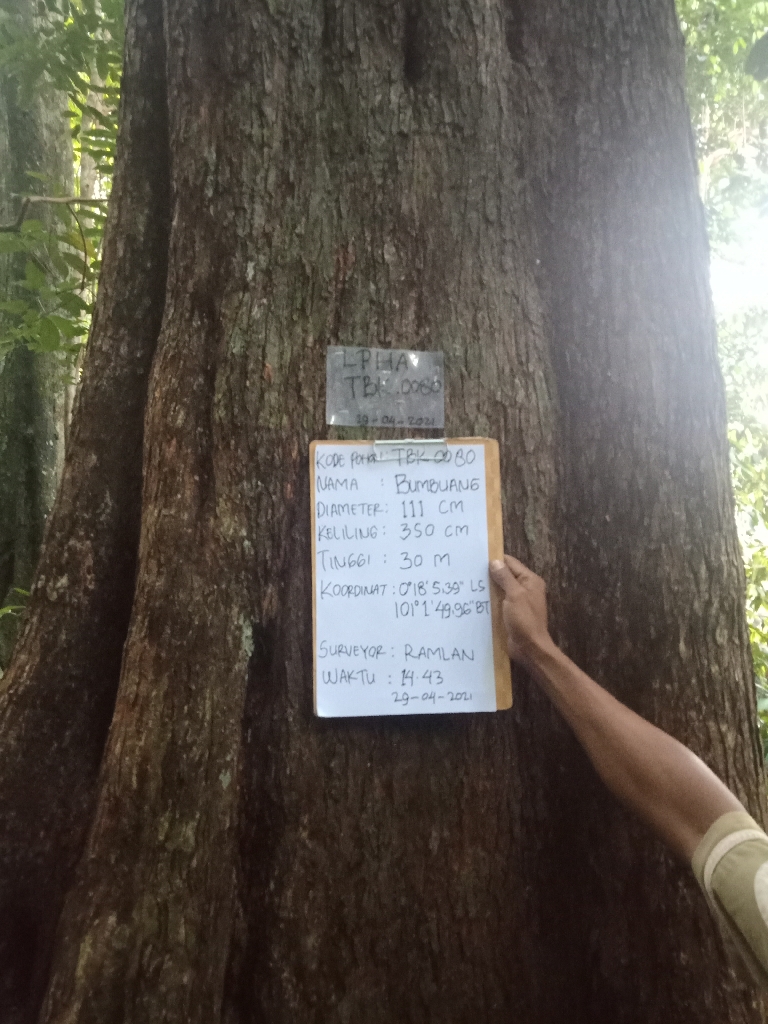 LPHA
TBK.0080
29-04-2021
KODE POHON: TBK 0080
NAMA : BUMBUANG
DIAMETER: 111 CM
KELILING: 350 CM
TINGGI : 30 M
KOORDINAT: 0°18'5.39" LS
101°1'49.96" BT
SURVEYOR: RAMLAN
WAKTU : 14.43
29-04-2021